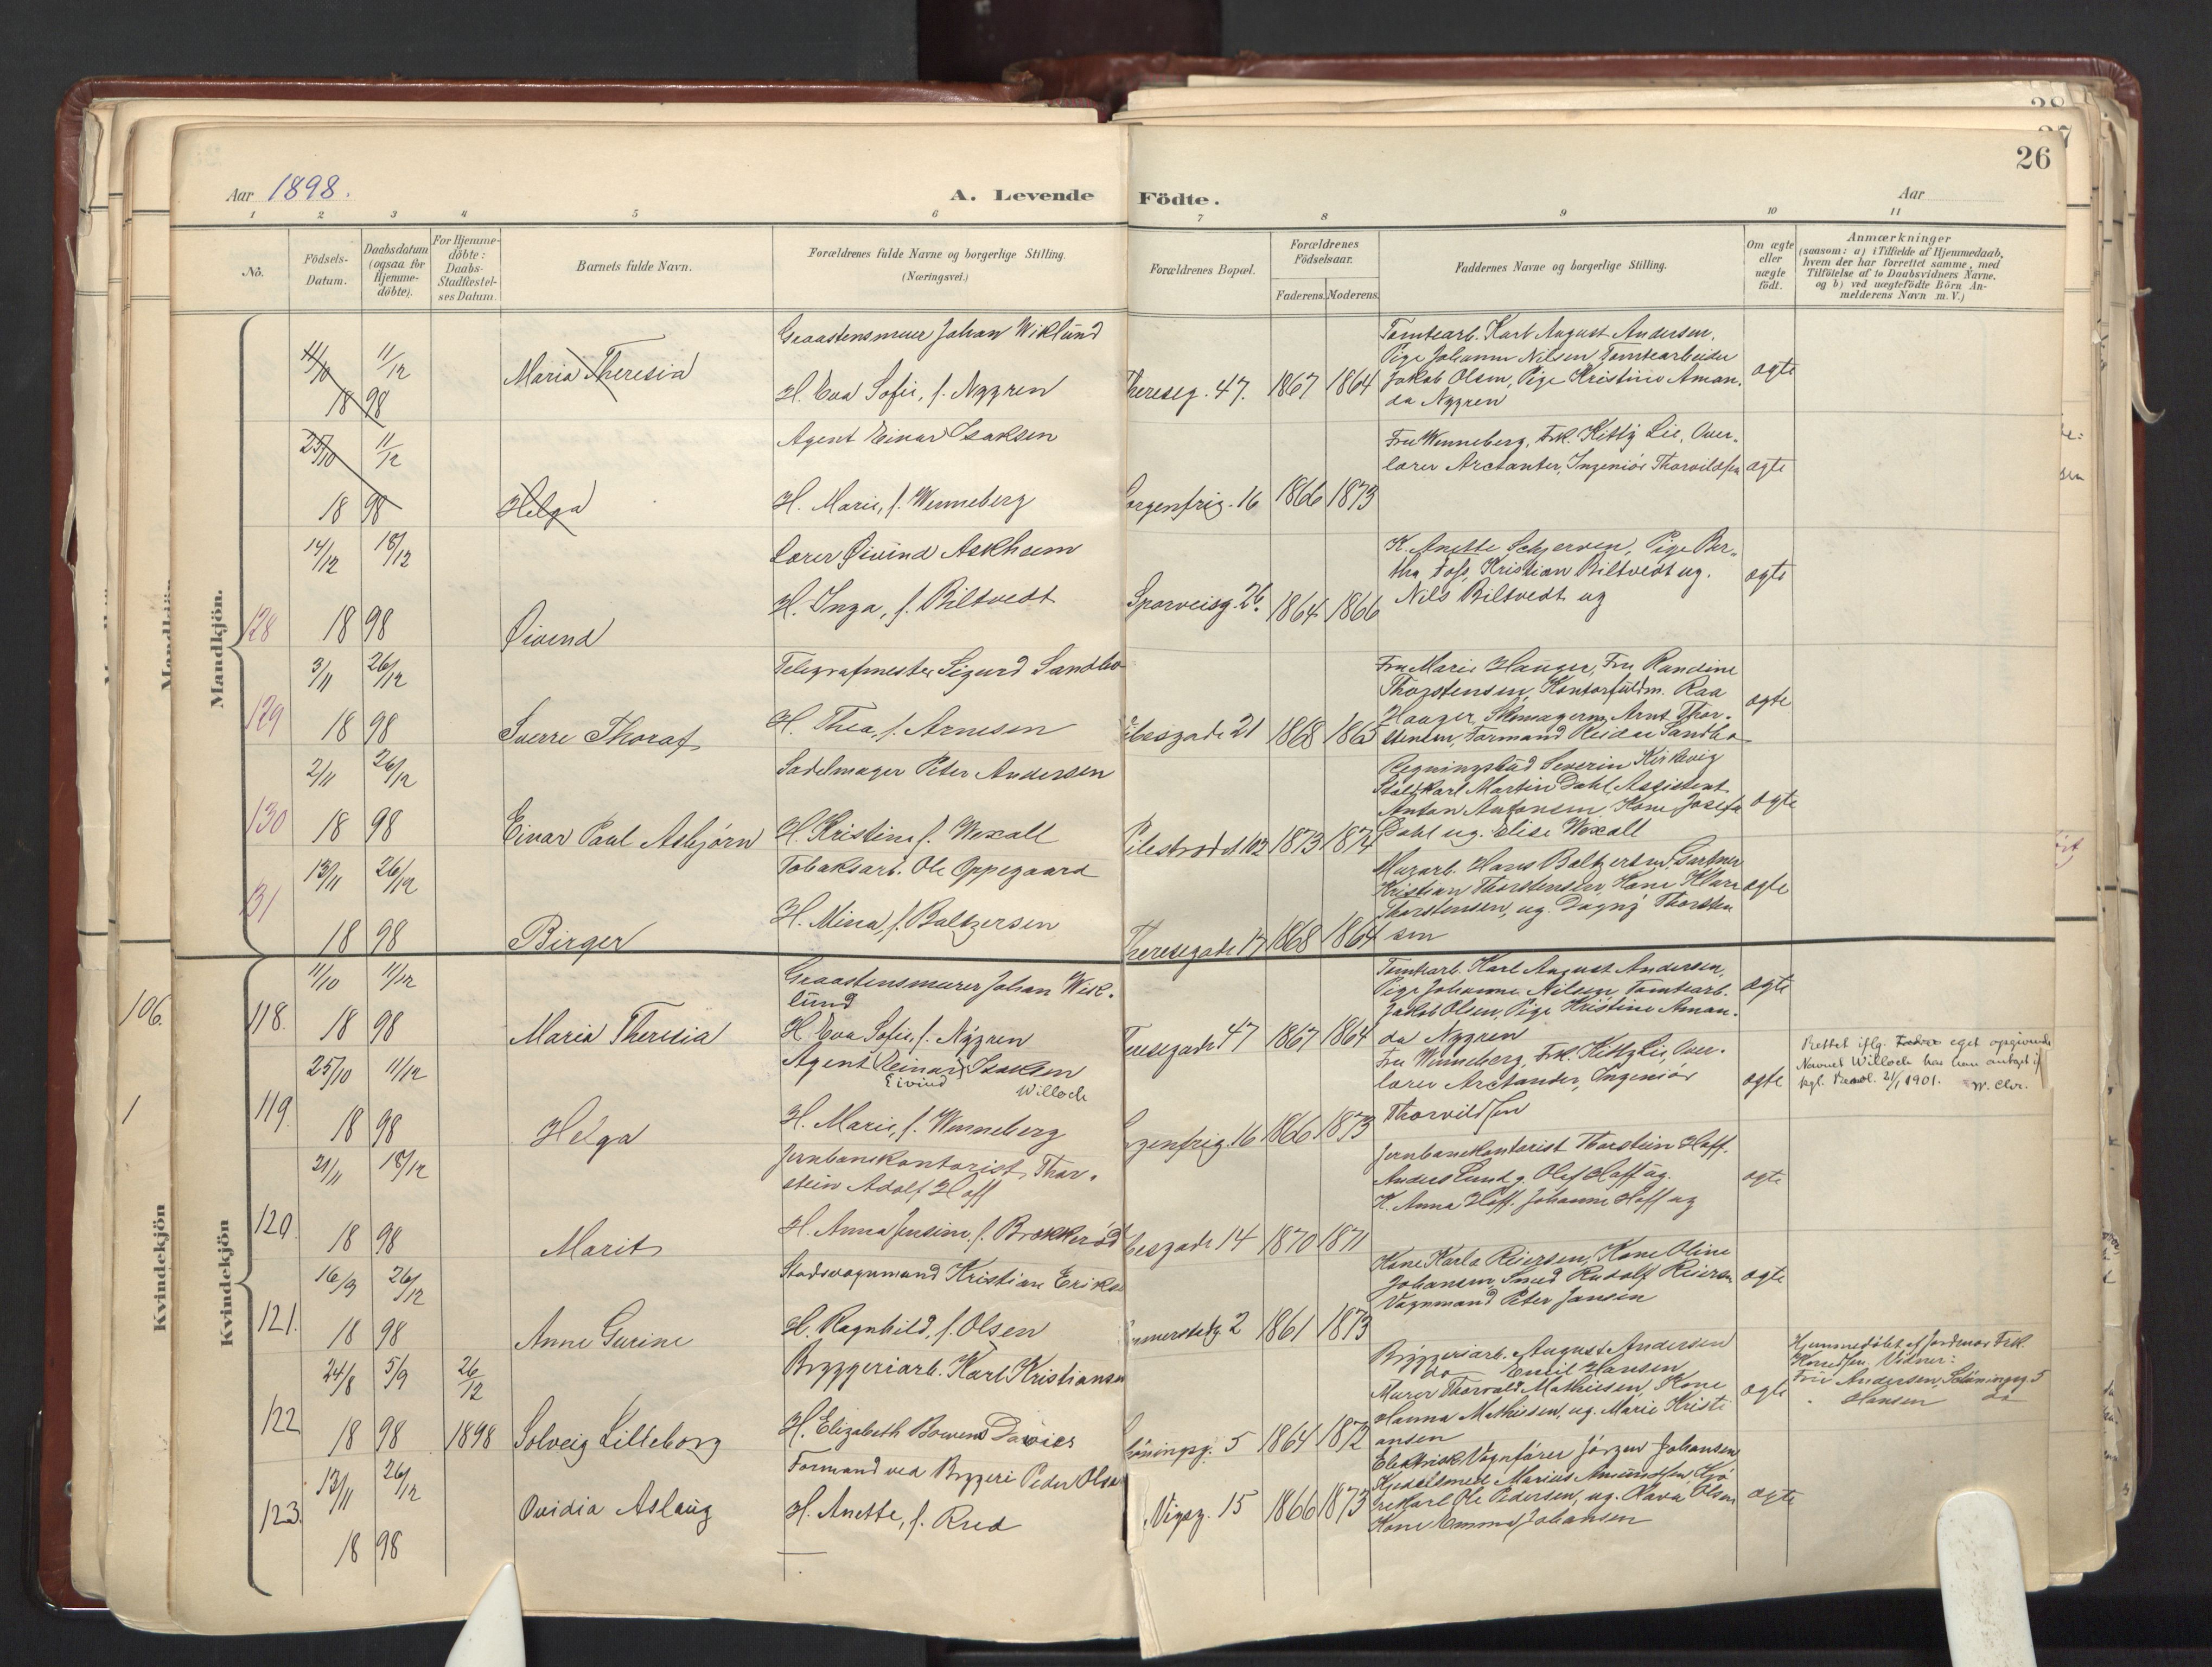 26
Aar 1898.
A. Levende Födte.
Aar
1 2 3 4 5 6 7 8 9 10 11
No.
Födsels-Datum.
Daabsdatum (ogsaa for Hjemme-döbte).
For Hjemme-döbte: Daabs-Stadfæstel-ses Datum.
Barnets fulde Navn.
Forældrenes fulde Navne og borgerlige Stilling.
(Næringsvei.)
Forældrenes Bopæl.
Forældrenes Födselsaar.
Faderens. Moderens.
Faddernes Navne og borgerlige Stilling.
Om ægte eller uægte födt.
Anmærkninger
(saasom: a) i Tilfælde af Hjemmedaab,
hvem der har forrettet samme, med
Tilföielse af to Daabsvidners Navne.
og b) ved uægtefödte Börn An-
melderens Navn m. V.)
Mandkjön.
11/10 18 11/12 98
Maria Theresia
Graastensmurer Johan Wiklund
H. Eva Sofie, f. Nygren
Thereseg. 47. 1867 1864
Tomtearb. Karl August Andersen,
Pige Johanne Nilsen, Tomtearbeider
Jakob Olsen, Pige Kristine Aman-
da Nygren
ægte
25/10 18 11/12 98
Helga
Agent Einar Isaksen
H. Marie, f. Wenneberg
Sorgenfrig. 16 1866 1873
Fru Wenneberg, Frk. Kitty Lie, Over-
lærer Arctander, Ingeniör Thorvildsen
ægte
128
14/12 18 18/12 98
Øivend
Lærer Øivind Askheim
H. Inga, f. Biltvedt
Sporveisg. 26. 1864 1866
K. Anette Schjerven, Pige Ber-
tha Foss, Kristian Biltvedt ug.
Nils Biltvedt ug
ægte
129
3/11 18 26/12 98
Sverre Thoraf
Telegrafmester Sigurd Sandbo
H. Thea, f. Arnesen
besgade 21 1868 1865
Fru Marie Hauger, Fru Randine
Thorstensen, Kontorfuldm. Raa
Hauger, Skomagerm. Arnt Thor-
stensen, Formand Reidar Sandbo
ægte
130
2/11 18 26/12 98
Einar Paul Asbjörn
Sadelmager Peter Andersen
H. Kristine f. Wexall
Pilestrædet 102 1873 1874
Regningsbud Severin Kirkevig
Staldkarl Martin Dahl, Assistent
Anton Antonsen, Kone Josefa
Dahl ug. Elise Wexall
ægte
131
13/11 18 26/12 98
Birger
Tobaksarb. Ole Oppegaard
H. Mina, f. Baltzersen
Theresegade 17 1868 1864
Murarb. Hans Baltzersen, Gartner
Kristian Thorstensen, Kone Klara
Thorstensen, ug. Dagny Thorsten
sen
ægte
Kvindekjön
118.
11/10 18 11/12 98
Maria Theresia
Graastensmurer Johan Wik-
lund
H. Eva Sofie, f. Nygren
Teresegade 47 1867 1864
Tomtearb. Karl August Andersen,
Pige Johanne Nilsen, Tomtearb.
Jakob Olsen, Pige Kristine Aman-
da Nygren
ægte
119.
25/10 18 11/12 98
Helga
Agent (Einar) Isaksen
Eivind Willoch
H. Marie, f. Wenneberg
genfrig. 16 1866 1873
Fru Wenneberg, Frk. Kitty Lie, Over-
lærer Arctander, Ingeniör
Thorvildsen
ægte
Rettet iflg. Faders eget opgivende
Navnet Willoch har han antaget if
kgl. 21/1 1901. W. Chr.
120.
21/11 18 18/12 98
Marit
Jernbanekontorist Thor-
stein Adolf Hoff
H. Anna Jensine, f. Brokkeröd
besgade 14 1870 1871
Jernbanekontorist Thorstein Hoff.
Anders Lund g. Olef Hoff ug.
K. Anna Hoff. Johanne Hoff ug
ægte
121.
16/9 18 26/12 98
Anne Gurine
Stadsvognmand Kristian Eriks
H. Ragnhild, f. Olsen
mersted 2 1861 1873
Kone Karla Reiersen, Kone Oline
Johansen, Smed Rudolf Reiersen
Vognmand Peter Jansen
ægte
122
24/8 18 5/9 98 26/12 1898
Solveig Lilleborg
Bryggeriarb. Karl Kristiansen
H. Elizabeth Bowens Davies
höningsg. 5 1864 1872
Bryggeriarb. August Andersen
do Emil Hansen
Murer Thorvald Mathiesen, Kone
Hanna Mathiesen, ug. Marie Kristi
ansen
ægte
Hjemmedöbt af Jordmor Frk.
Vidner:
Fru Andersen, Schöningsg 5
" Hansen do
123.
13/11 18 26/12 98
Ovidia Aslaug
Formand ved Bryggeri Peder Olsen
H. Anette, f. Rud
Vigsg. 15 1866 1873
Elektrisk Vognförer Jörgen Johansen
Kjedelsmed Marius Amundsen, Kjö
rekarl Ole Pedersen, ug. Olava Olsen
Kone Emma Johansen
ægte
106.
1
Kvindekjön